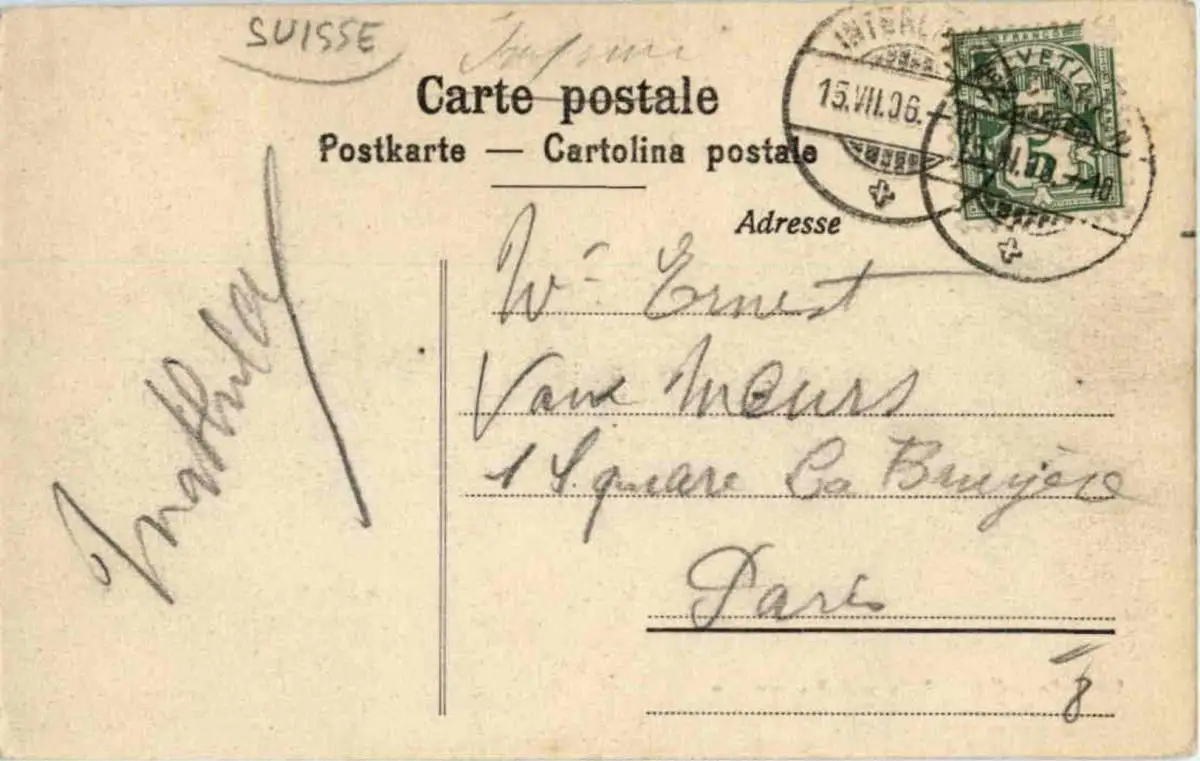 SUISSE
Carte postale
Postkarte — Cartolina postale
Adresse
INTERL
15.VII.06.–
FRANCO
HELVETIA
5
–10
Mr Ernest
Van Meurs
1 Square La Bruyère
Paris
8
Mathilda